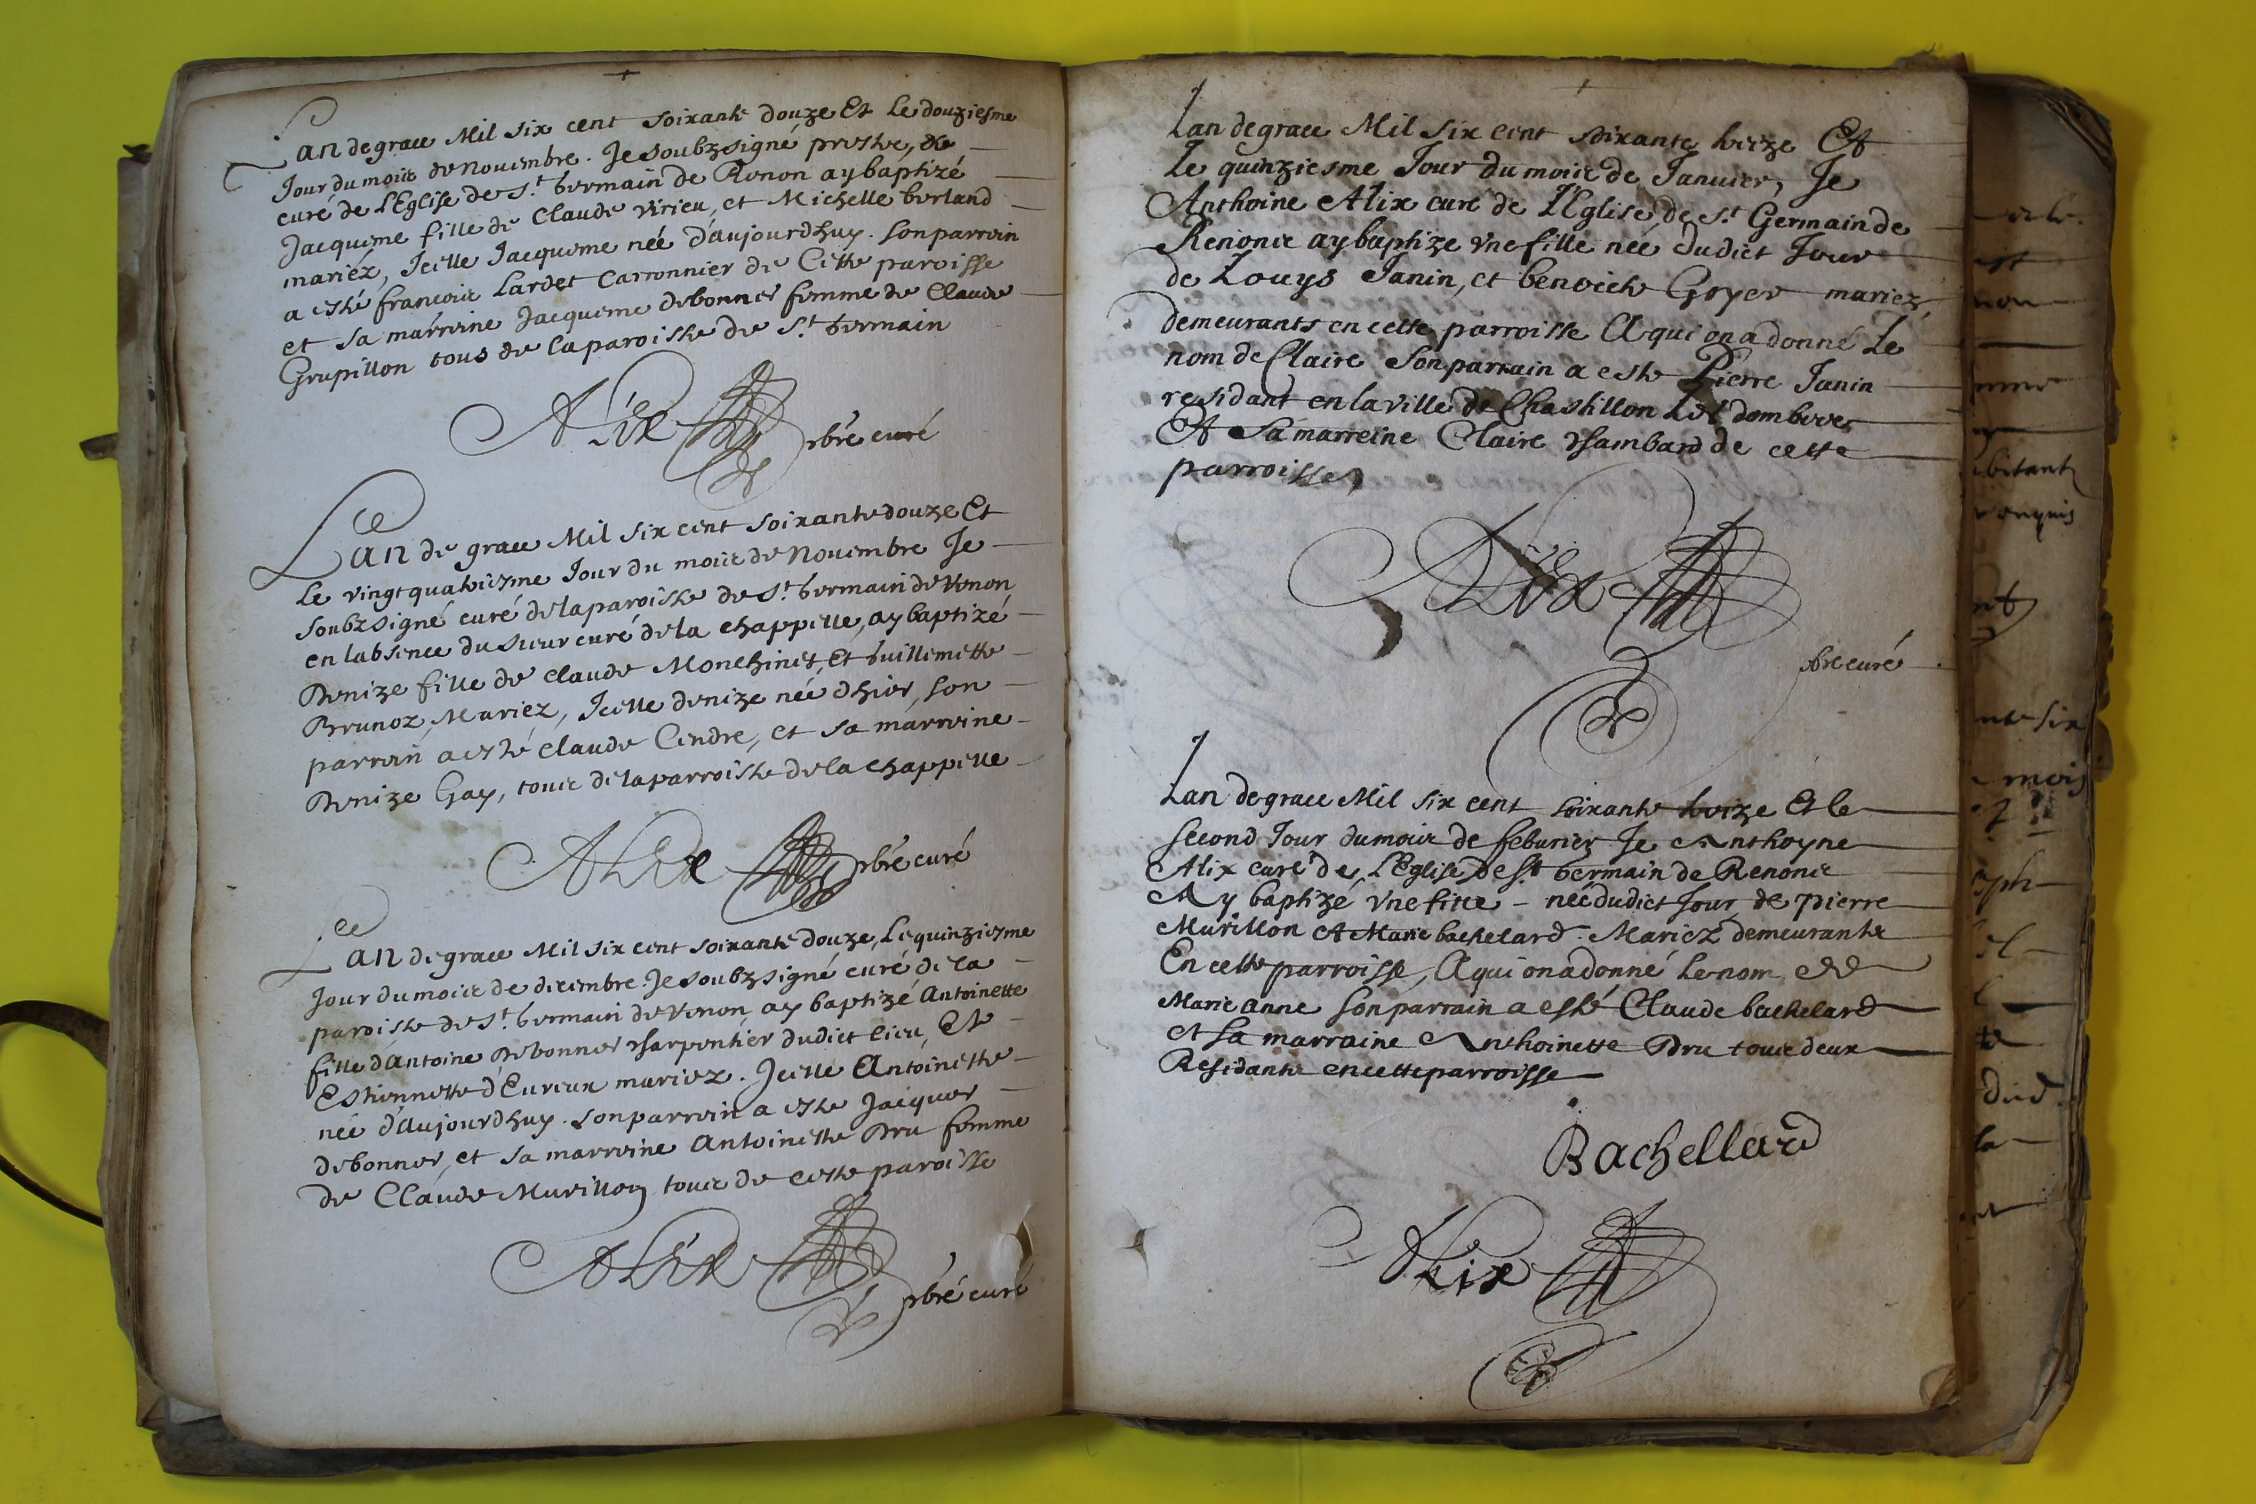 Lan de grace Mil six cent soixante douze Et Le douziesme
Jour du mois de Nouembre. Je soubzsigné prestre, &
curé de L'Eglise de St. Germain de Renon ay baptizé
Jacqueme fille de Claude Virieu, et Michelle berland
mariéz, Icelle Jacqueme née d'aujourdhuy. Son parrein
a esté francois Lardet Carronnier de Cette paroisse
et sa marreine Jacqueme debonnes femme de Claude
Grupillon tous de la paroisse de St. Germain
Alix pbré curé
Lan de grace Mil six cent soixante douze Et
Le vingt quatriesme Jour du mois de Nouembre Je
Soubzsigné curé de la paroisse de St. Germain de Renon
en labsence du sieur curé de la chappelle, ay baptizé
Denize fille de Claude Monchinet, Et Guillemette
Brunoz, Mariez, Icelle denize née d'hier, Son
parrein a esté Claude Cendre, et sa marreine
Denize Gay, touts de la parroisse de la chappelle
Alix pbré curé
Lan de grace Mil six cent soixante douze, Le quinziesme
Jour du mois de decembre. Je soubzsigné curé de la
paroisse de St. Germain de Renon, ay baptizé Antoinette
fille d'Antoine Debonnes charpentier dudict lieu, Et
Estiennette d'Eureux mariez. Icelle Antoinette
née d'aujourdhuy. Son parrein a esté Jacques
debonnes, et sa marreine Antoinette Dru femme
de Claude Murillon touts de ceste paroisse
Alix pbré curé
Lan de grace Mil six cent soixante treize Et
Le quinziesme Jour du mois de Januier, Je
Anthoine Alix curé de L'Eglise de St. Germain de
Renons ay baptize vne fille née dudict Jour
de Louys Janin, et benoiste Goyer mariez,
demeurants en cette parroisse A qui on a donné Le
nom de Claire Son parrain a esté Pierre Janin
residant en la ville de Chastillon Les dombes
Et sa marreine Claire chambard de cette
parroisse
Alix
pbre curé
Lan de grace Mil six cent soixante treize Et le
second Jour du mois de feburier Je Anthoyne
Alix curé de L'Eglise de St Germain de Renons
Ay baptizé vne fille - née dudict Jour de pierre
Murillon Et Marie bachelard. Mariez demeurants
En cette parroisse, A qui on a donné Le nom de
Marie anne Son parrain a esté Claude bachelard
et Sa marraine Anthoinette Dru touts deux
Residants en cette parroisse
Bachellard
Alix